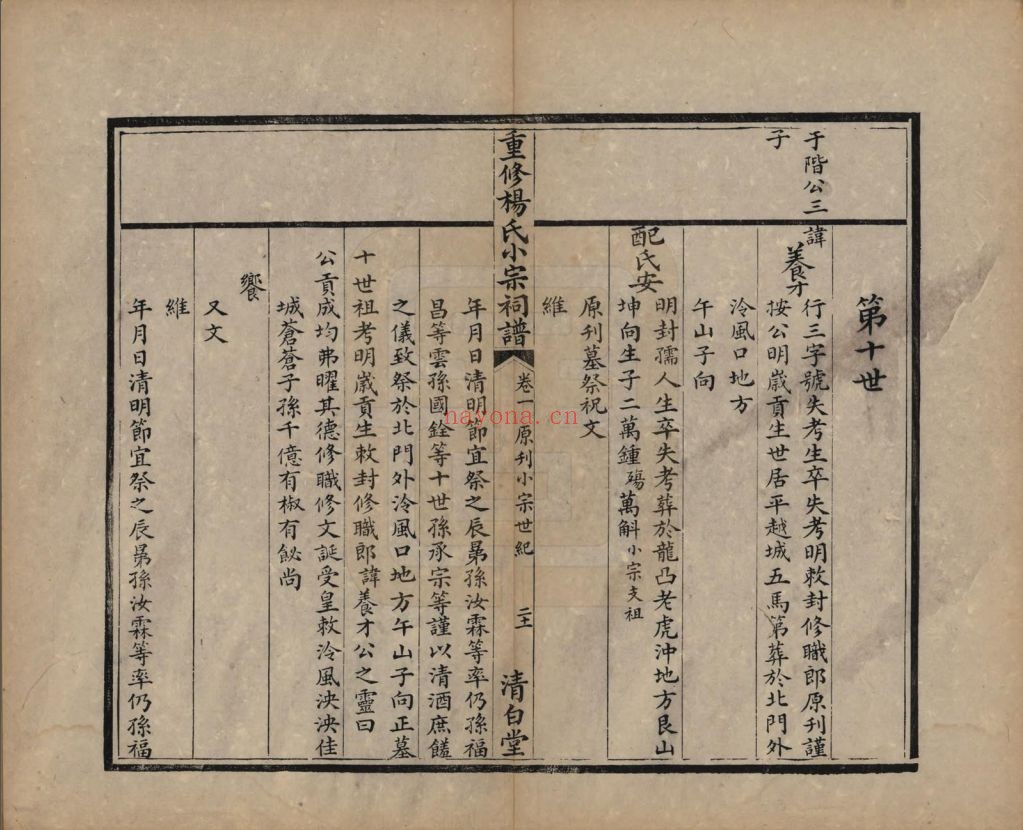 第十世
于階公三
子
諱養才
行三字號失考生卒失考明敕封修職郎原刊謹
按公明歲貢生世居平越城五馬第葬於北門外
泠風口地方
午山子向
配氏安
明封孺人生卒失考葬於龍凸老虎沖地方艮山
坤向生子二萬鍾殤萬斛小宗支祖
原刊墓祭祝文
維
重修楊氏小宗祠譜
卷一原刊小宗世紀
清白堂
年月日清明節宜祭之辰晜孫汝霖等率仍孫福
昌等雲孫國銓等十世孫承宗等謹以清酒庶饈
之儀致祭於北門外泠風口地方午山子向正墓
十世祖考明歲貢生敕封修職郎諱養才公之靈曰
公貢成均弗曜其德修職修文誕受皇敕泠風泱泱佳
城蒼蒼子孫千億有椒有飶尚
饗
又文
維
年月日清明節宜祭之辰晜孫汝霖等率仍孫福
nayona.cn